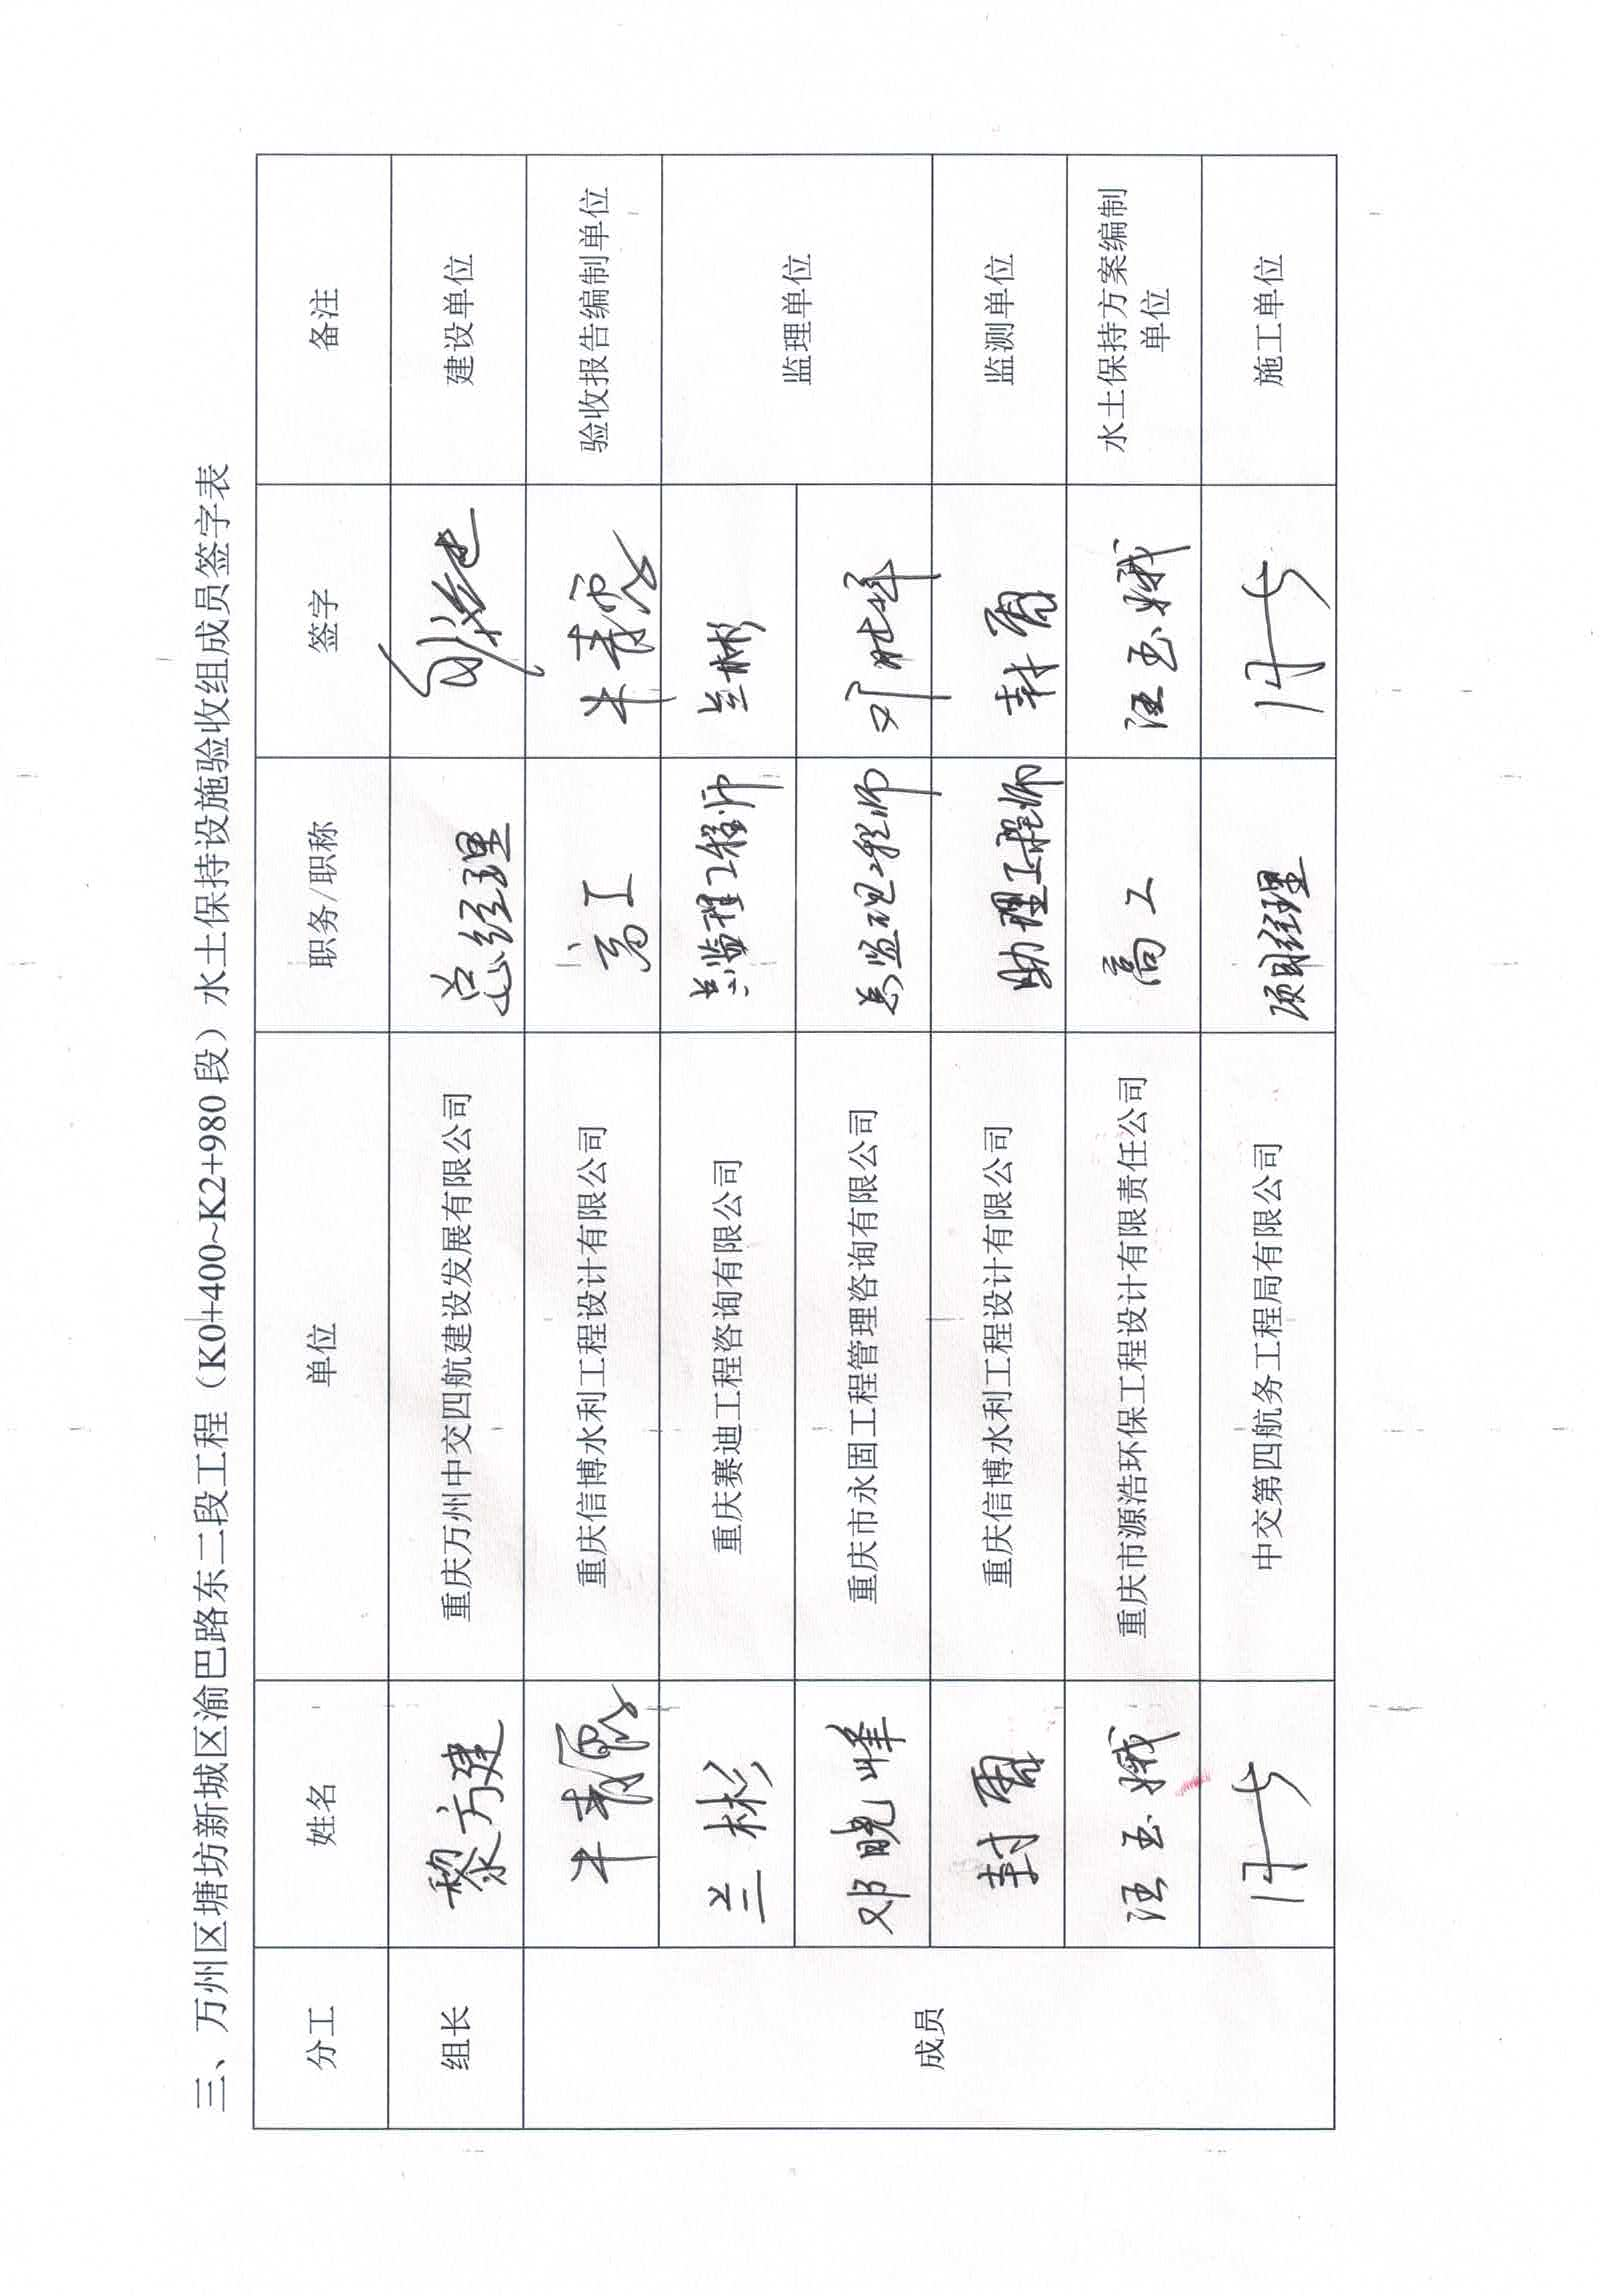 三、万州区塘坊新城区渝巴路东二段工程（K0+400~K2+980 段）水土保持设施验收组成员签字表
分工 姓名 单位 职务/职称 签字 备注
组长 黎方建 重庆万州中交四航建设发展有限公司 总经理 建设单位
成员
牛青 重庆信博水利工程设计有限公司 高工 牛青 验收报告编制单位
兰彬 重庆赛迪工程咨询有限公司 总监理工程师 兰彬 监理单位
邓晓峰 重庆市永固工程管理咨询有限公司 总监理工程师 邓晓峰
封雷 重庆信博水利工程设计有限公司 助理工程师 封雷 监测单位
汪玉娥 重庆市源浩环保工程设计有限责任公司 高工 汪玉娥 水土保持方案编制
单位
中交第四航务工程局有限公司 项目经理 施工单位